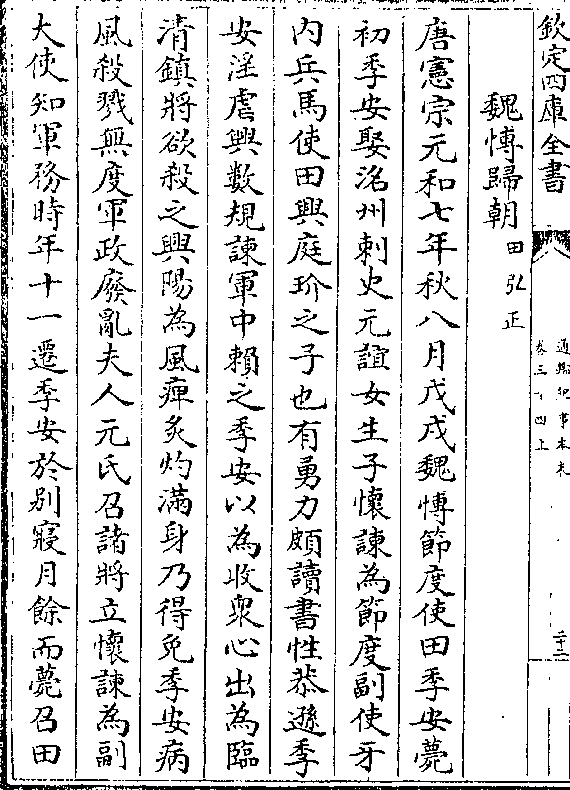 欽定四庫全書
通鑑紀事本末
卷三十四上
魏博歸朝田弘正
唐憲宗元和七年秋八月戊戌魏博節度使田季安薨
初季安娶洺州刺史元誼女生子懷諫為節度副使牙
内兵馬使田興庭玠之子也有勇力頗讀書性恭遜季
安淫虐興數規諫軍中賴之季安以為收衆心出為臨
清鎮將欲殺之興陽為風痺炙灼滿身乃得免季安病
風殺戮無度軍政廢亂夫人元氏召諸將立懷諫為副
大使知軍務時年十一遷季安於别寢月餘而薨召田